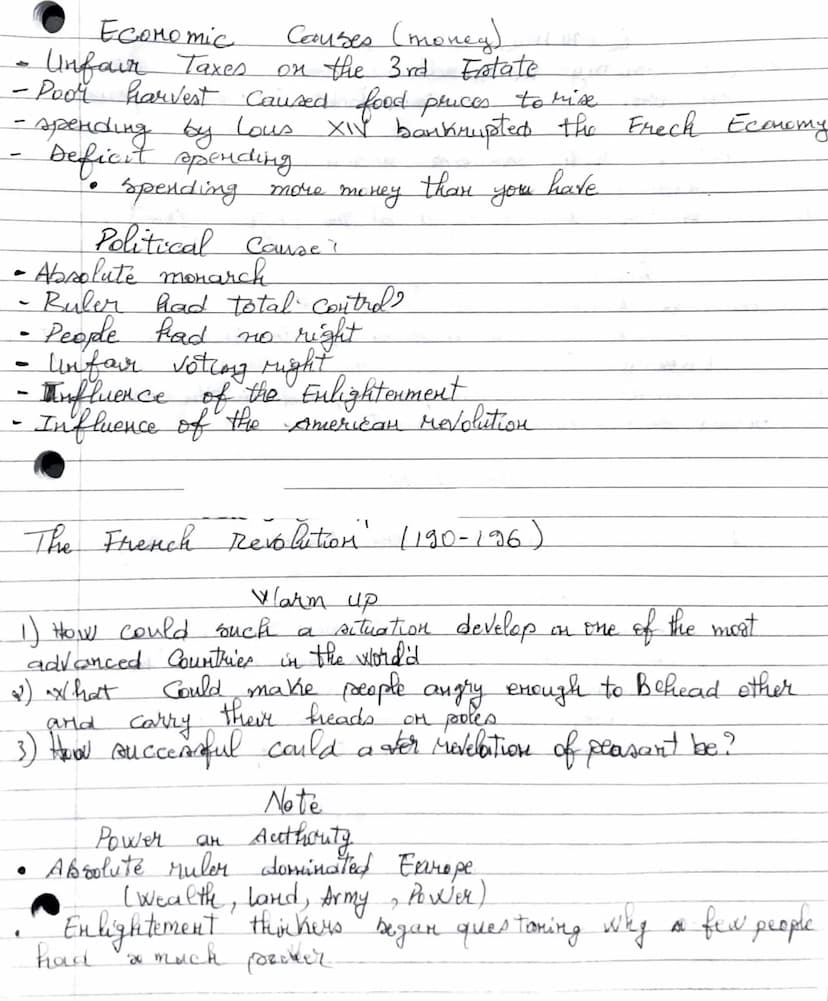 Economic Causes (money)
- Unfair Taxes on the 3rd Estate
- Poor harvest caused food prices to rise
- spending by Lous XIV bankrupted the Frech Economy
- Deficit spending
• spending more money than you have
Political Cause:
- Absolute monarch
- Ruler had total control
- People had no right
- Unfair voting right
- Influence of the Enlightenment
- Influence of the American revolution
The French Revolution (190-196)
Warm up
1) How could such a situation develop in one of the most
advanced Countries in the world
2) What could make people angry enough to Behead other
and carry their heads on poles
3) How successful could a revelation of peasant be?
Note
Power an Authority
• Absolute ruler dominated Europe
(Wealth, Land, Army, Power)
• Enlightement thinkers began questoning why a few people
had much power